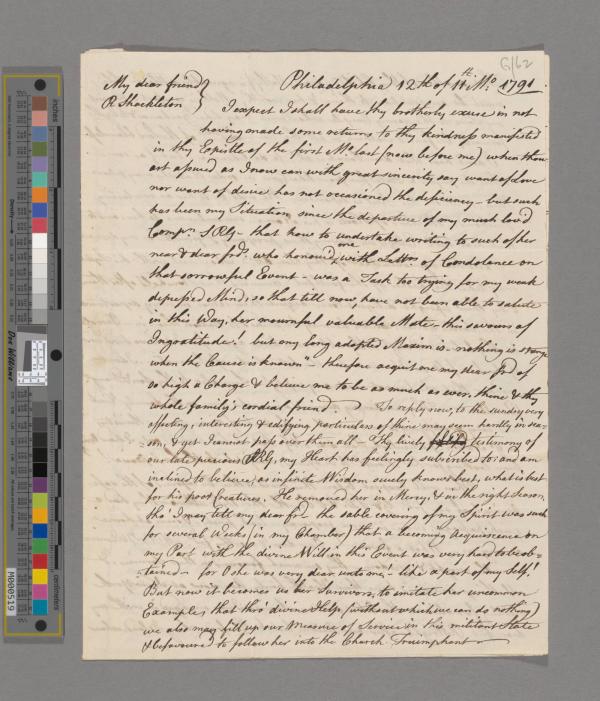 G/62
My dear friend
R Shackleton
Philadelphia 12th of 11th Mo. 1791
I expect I shall have thy brotherly excuse in not
having made some returns to thy kindness manifested
in thy Epistle of the first Mo. last (now before me) when thou
art assured as I now can with great sincerity say want of Love
nor want of desire has not occasioned the deficiency - but such
has been my Situation since the departure of my much lov'd
Compn. - that how to undertake writing to such of her
near & dear frds. who honour'd me with Letters of Condolance on
that sorrowful Event - was a Task too trying for my weak
depressed Mind, so that till now, have not been able to salute
in this Way, her mournful valuable Mate - this savours of
Ingratitude! but my long adopted Maxim is - nothing is strange
when the Cause is known" - therefore acquit me my dear frd of
so high a Charge & believe me to be as much as ever, thine & thy
whole family's cordial friend. To reply now, to the sundry very
affecting, interesting & edifying particulars of thine may seem hardly in sea-
son, & yet I cannot pass over them all - Thy lively testimony of
our late precious my Heart has feelingly subscribed to: and am
inclined to believe, as infinite Wisdom surely knows best, what is best
for his poor Creatures. He removed her in Mercy, & in the right Season,
tho' I may tell my dear frd the sable covering of my Spirit was such
for several Weeks (in my Chamber) that a becoming Acquiescence on
my Part with the divine Will in this Event was very hard to be ob-
tained - for O she was very dear unto me! - like a part of my Self!
But now it becomes us her Survivors, to imitate her uncommon
Example, that thro' divine Help (without which we can do nothing)
we also may fill up our Measure of Service in this militant State
& be favoured to follow her into the Church Triumphant
inches
centimeters
Don Williams
M000519